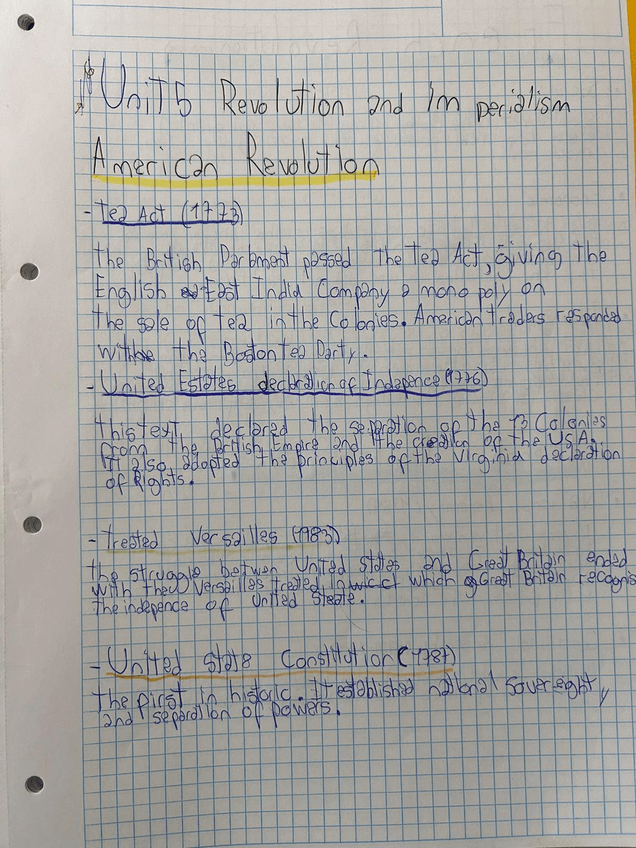 Unit 5 Revolution and Imperialism
American Revolution
- Tea Act (1773)
The British Parlament passed the Tea Act, giving the
English East India Company a monopoly on
the sale of tea in the Colonies. American traders responded
with the Boston tea Party.
- United Estates declaration of Indepence (1776)
This text declared the separation of the 13 Colonies
from the British Empire and the creation of the U.S.A.
It also adopted the principles of the Virginia declaration
of Rights.
- treated Versailles (1983)
the struggle betwen United states and Great Britain ended
with the Versailles treated in which Great Britain recognis
the indepence of United State.
- United State Constitution (1787)
The first in historic. It established national sovereight,
and separation of powers.